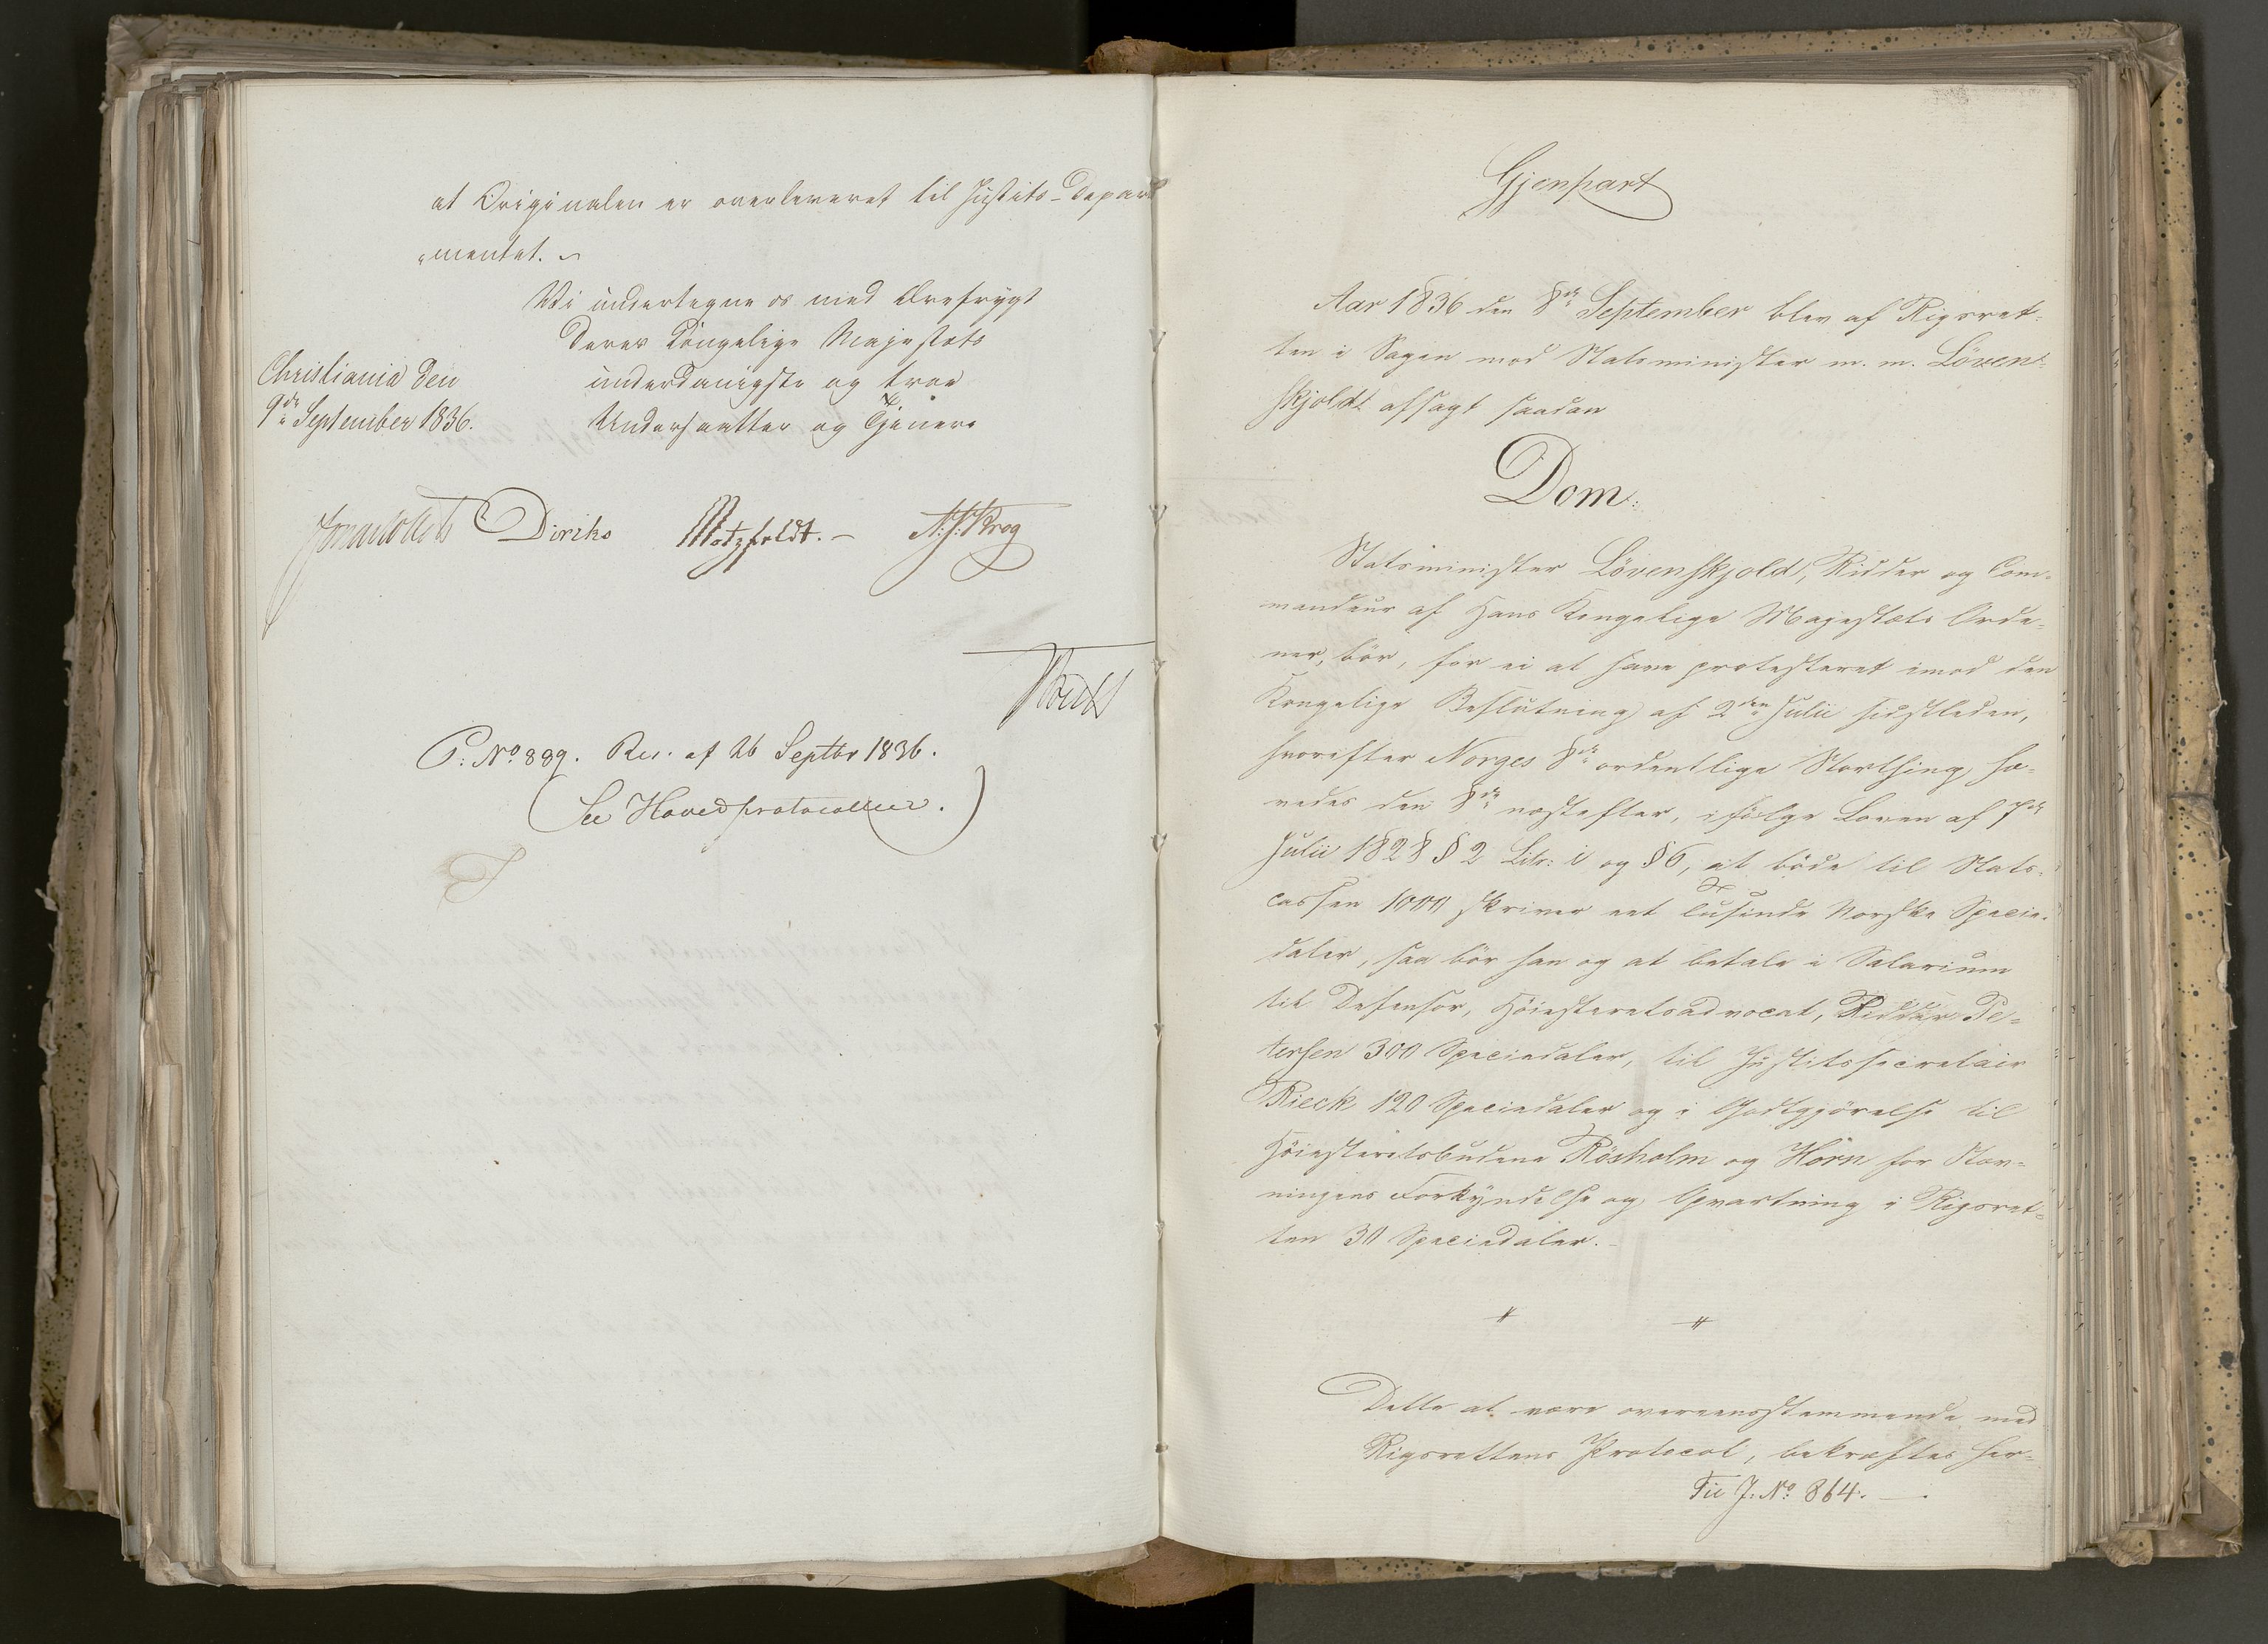 at Originalen er overleveret til Justits-Depart
„mentet.
Vi undertegne os med Ærefrygt
Deres Kongelige Majestæts
underdanigste og troe
Undersaatter og Tjenere
Christiania den
9de September 1836.
Diriks Motzfeldt. – N. J. Krog
P: No 889. Res. af 26 Septbr 1836.
(See Hovedprotocollen.)
Gjenpart
Aar 1836 den 8de September blev af Rigsret-
ten i Sagen mod Statsminister m. m. Löven-
skjold afsagt saadan
Dom:
Statsminister Lövenskjold, Ridder og Com-
mandeur af Hans Kongelige Majestæts Orde-
ner, bör, for ei at have protesteret imod den
Kongelige Beslutning af 2den Julii sidstleden,
hvorefter Norges 8de ordentlige Storthing hæ-
vedes den 8de næstefter, ifölge Loven af 7de
Julii 1828 § 2 Litr: i og § 6, at böde til Stats-
cassen 1000 skriver eet tusinde Norske Specie-
daler, saa bör han og at betale i Salarium
til Defensor, Höiesteretsadvocat, Ridder Pe-
tersen 300 Speciedaler, til Justitssecretair
Rieck 120 Speciedaler og i Godtgjörelse til
Höiesteretsbudene Rösholm og Horn for Stæv-
ningens Forkyndelse og Opvartning i Rigsret-
ten 30 Speciedaler.
Dette at være overeensstemmende med
Rigsrettens Protocol, bekræftes her-
Til J: No 864.